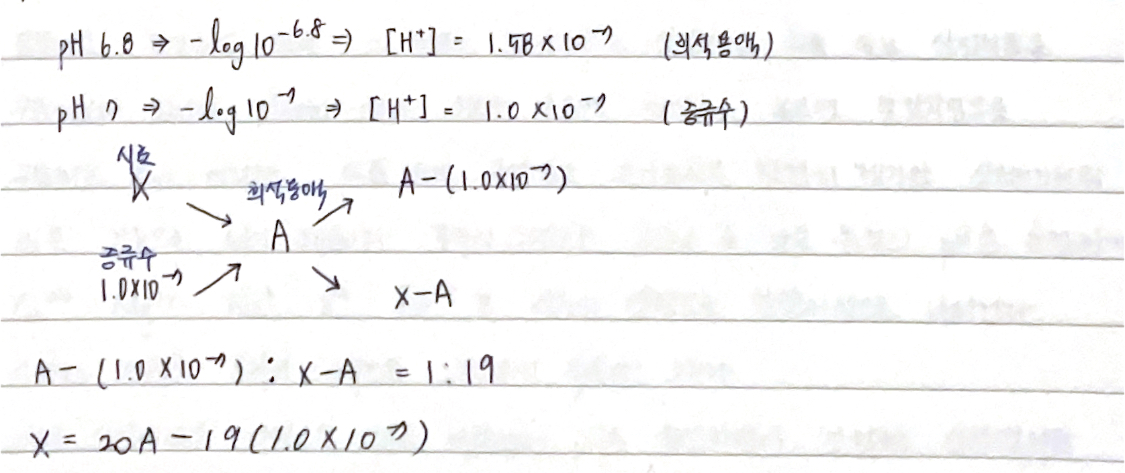 pH 6.8 ⇒ -log 10^-6.8 ⇒ [H⁺] = 1.58 × 10^-7 (희석용액)
pH 7 ⇒ -log 10^-7 ⇒ [H⁺] = 1.0 × 10^-7 (증류수)
시료
X
희석용액
A - (1.0×10^-7)
A
증류수
1.0×10^-7
X-A
A - (1.0 × 10^-7) : X-A = 1 : 19
X = 20A - 19 (1.0 × 10^-7)